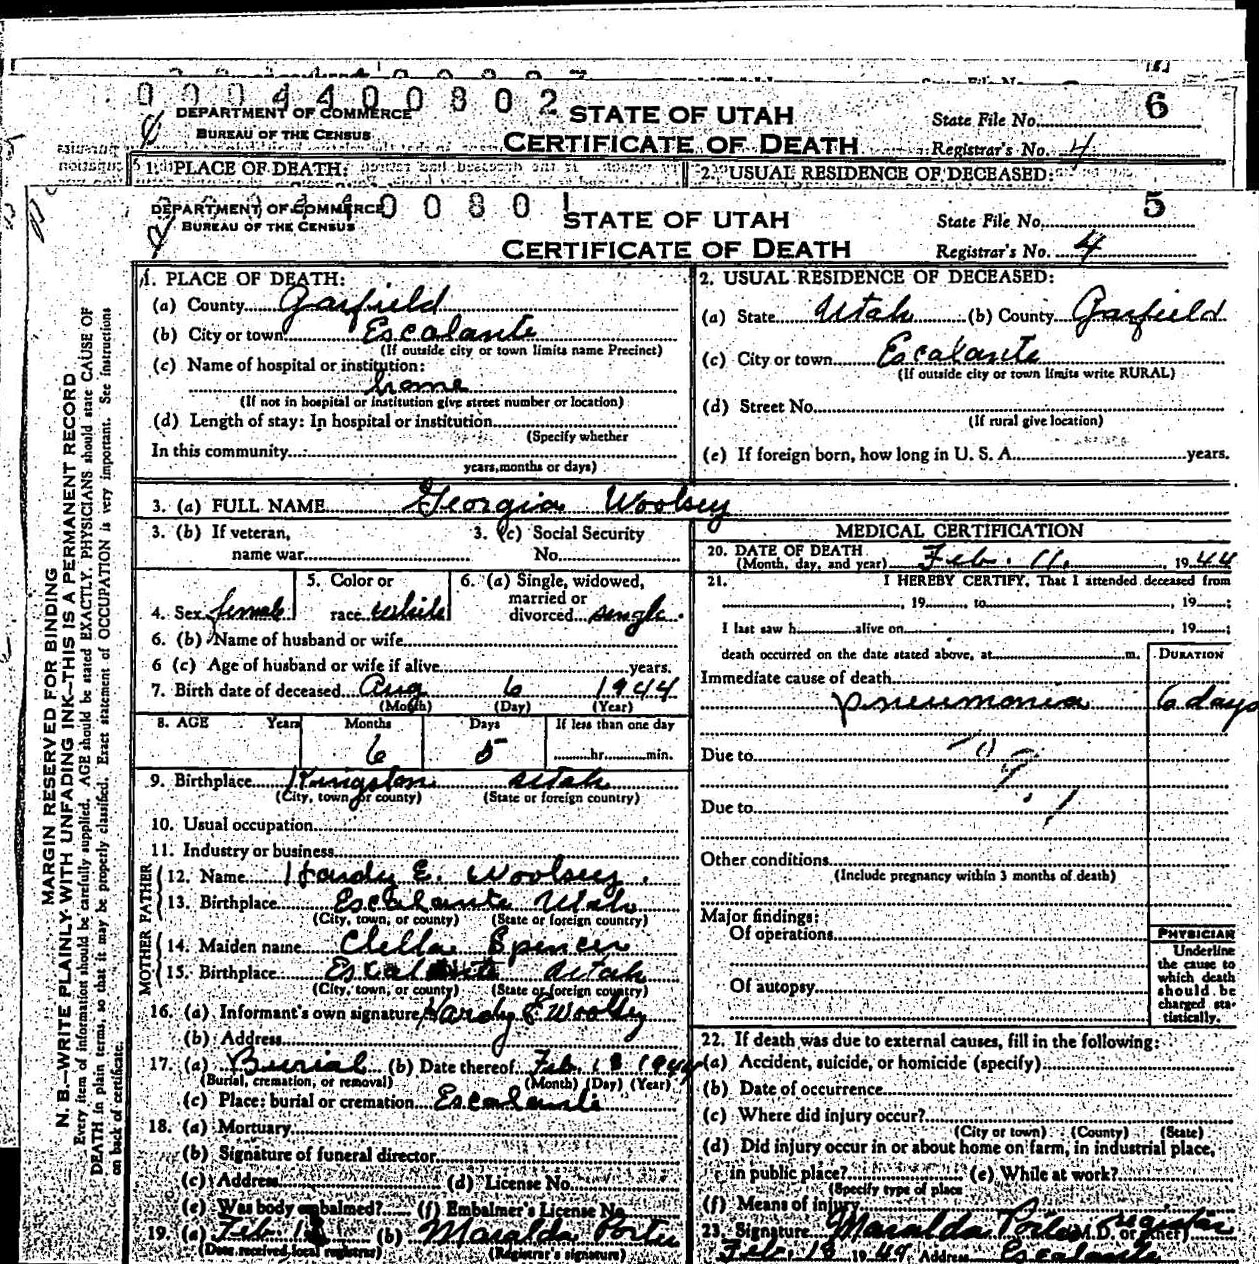 0 0 0 4 4 0 0 8 0 2
DEPARTMENT OF COMMERCE
BUREAU OF THE CENSUS
STATE OF UTAH
CERTIFICATE OF DEATH
State File No. 6
Registrar's No. 4
1. PLACE OF DEATH:
2. USUAL RESIDENCE OF DECEASED:
DEPARTMENT OF COMMERCE
0 0 8 0 1
BUREAU OF THE CENSUS
STATE OF UTAH
CERTIFICATE OF DEATH
State File No. 5
Registrar's No. 4
MARGIN RESERVED FOR BINDING
N. B.—WRITE PLAINLY WITH UNFADING INK—THIS IS A PERMANENT RECORD
Every item of information should be carefully supplied. AGE should be stated EXACTLY. PHYSICIANS should state CAUSE OF
DEATH in plain terms, so that it may be properly classified. Exact statement of OCCUPATION is very important. See instructions
on back of certificate.
1. PLACE OF DEATH:
(a) County Garfield
(b) City or town Escalante
(If outside city or town limits name Precinct)
(c) Name of hospital or institution:
home
(If not in hospital or institution give street number or location)
(d) Length of stay: In hospital or institution
(Specify whether
In this community
years, months or days)
2. USUAL RESIDENCE OF DECEASED:
(a) State Utah (b) County Garfield
(c) City or town Escalante
(If outside city or town limits write RURAL)
(d) Street No.
(If rural give location)
(e) If foreign born, how long in U. S. A. years.
3. (a) FULL NAME Georgia Woolsey
3. (b) If veteran,
name war
3. (c) Social Security
No.
4. Sex female
5. Color or
race white
6. (a) Single, widowed,
married or
divorced single
6. (b) Name of husband or wife
6 (c) Age of husband or wife if alive years.
7. Birth date of deceased Aug 6 1944
(Month) (Day) (Year)
8. AGE Years Months Days If less than one day
6 5 hr. min.
9. Birthplace Kingston Utah
(City, town or county) (State or foreign country)
10. Usual occupation
11. Industry or business
FATHER
12. Name Hardy E. Woolsey.
13. Birthplace Escalante Utah
(City, town, or county) (State or foreign country)
MOTHER
14. Maiden name Clella Spencer
15. Birthplace Escalante Utah
(City, town, or county) (State or foreign country)
16. (a) Informant's own signature Hardy E Woolsey
(b) Address
17. (a) Burial (b) Date thereof Feb. 13 1944
(Burial, cremation, or removal) (Month) (Day) (Year)
(c) Place: burial or cremation Escalante
18. (a) Mortuary
(b) Signature of funeral director
(c) Address (d) License No.
(e) Was body embalmed? (f) Embalmer's License No.
19. (a) Feb 13 (b) Maralda Porter
(Date received local registrar) (Registrar's signature)
MEDICAL CERTIFICATION
20. DATE OF DEATH
(Month, day, and year) Feb. 11. 1944
21. I HEREBY CERTIFY, That I attended deceased from
, 19 , to , 19 ;
I last saw h alive on , 19 ;
death occurred on the date stated above, at m.
DURATION
Immediate cause of death
pneumonia 6 days
Due to
Due to
Other conditions
(Include pregnancy within 3 months of death)
Major findings:
Of operations
Of autopsy
PHYSICIAN
Underline
the cause to
which death
should be
charged sta-
tistically.
22. If death was due to external causes, fill in the following:
(a) Accident, suicide, or homicide (specify)
(b) Date of occurrence
(c) Where did injury occur?
(City or town) (County) (State)
(d) Did injury occur in or about home on farm, in industrial place,
in public place? (e) While at work?
(Specify type of place
(f) Means of injury
23. Signature Maralda Porter registrar
M.D. or other)
Feb. 13 1944 Address Escalante